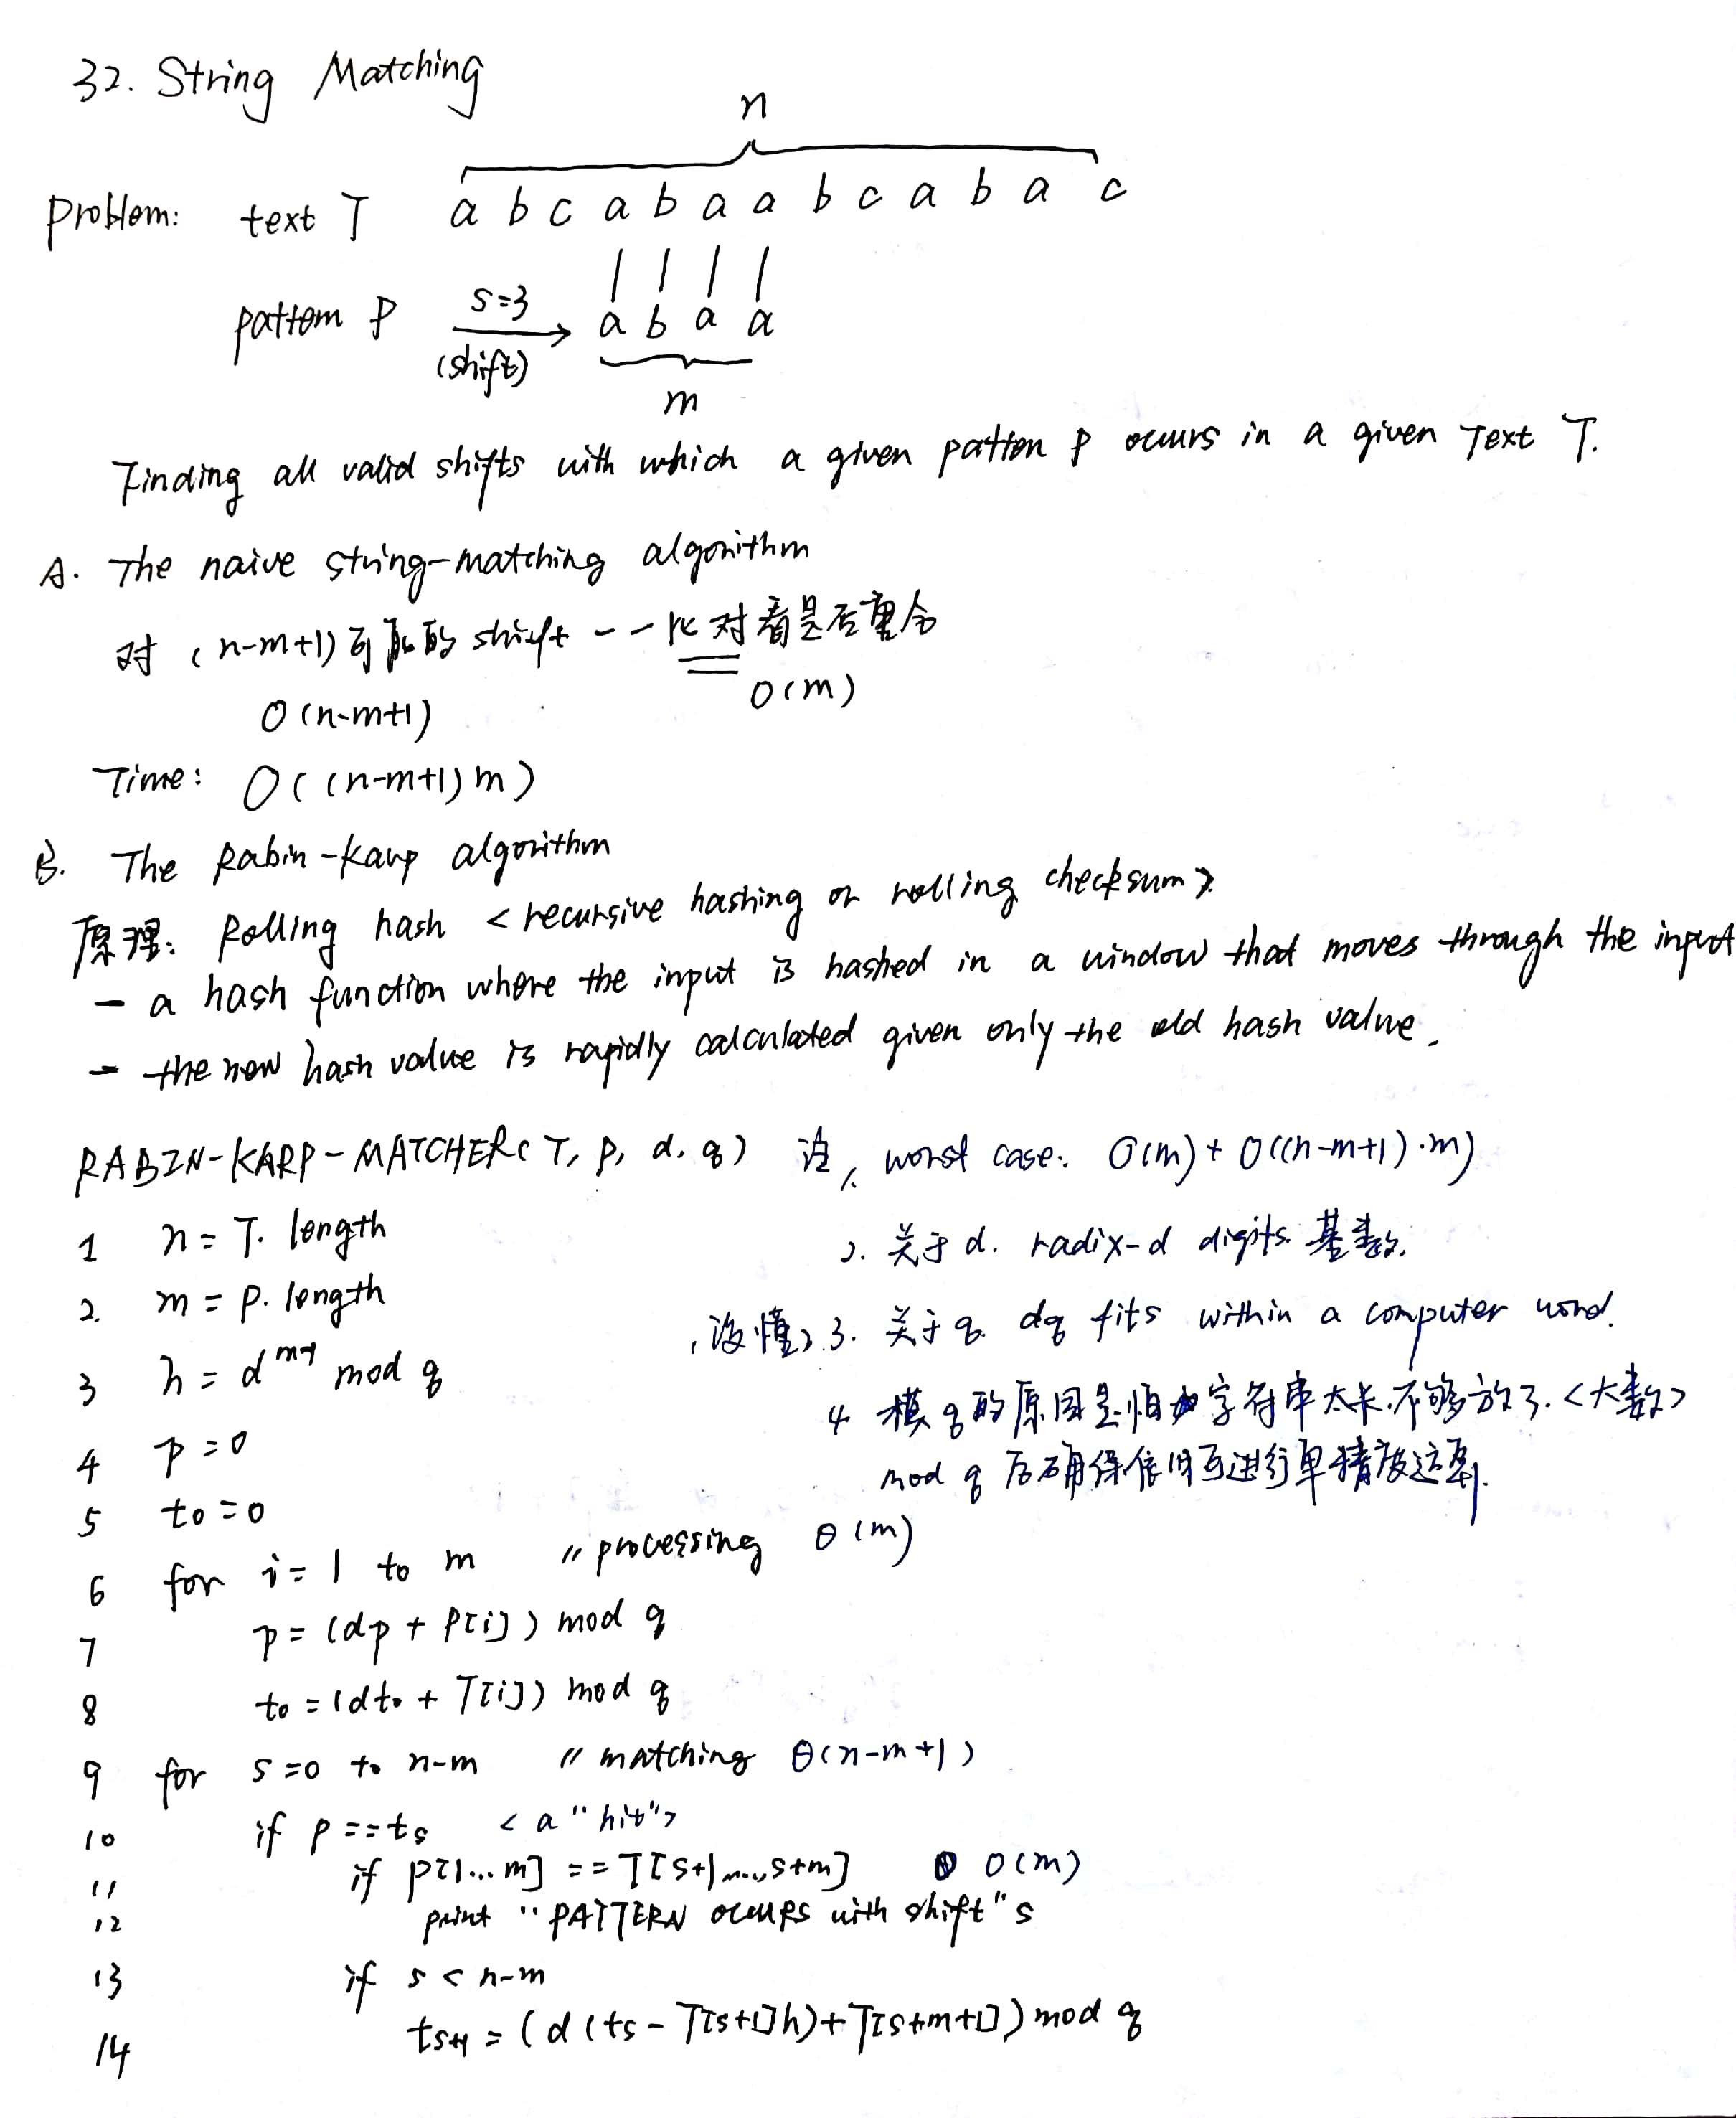 32. String Matching
n
Problem: text T a b c a b a a b c a b a c
pattern P s=3 (shift) a b a a
m
Finding all valid shifts with which a given pattern P occurs in a given Text T.
A. The naive string-matching algorithm
对 (n-m+1) 可能的 shift 一一比对看是否重合
O(m)
O(n-m+1)
Time: O((n-m+1)m)
B. The Rabin-Karp algorithm
原理: Rolling hash <recursive hashing or rolling checksum>.
- a hash function where the input is hashed in a window that moves through the input
- the new hash value is rapidly calculated given only the old hash value.
RABIN-KARP-MATCHER(T, P, d, q) 注 1. worst case: O(m) + O((n-m+1)·m)
1 n = T. length
2. 关于 d. radix-d digits. 基数.
2. m = P. length
(没懂) 3. 关于 q. dq fits within a computer word.
3 h = d^{m-1} mod q
4. 模 q 的原因是怕字符串太长.不够放了.<大数>
4 p = 0
mod q 后确保依旧可进行单精度运算.
5 t₀ = 0
6 for i = 1 to m // processing θ(m)
7 p = (dp + P[i]) mod q
8 t₀ = (dt₀ + T[i]) mod q
9 for s = 0 to n-m // matching θ(n-m+1)
10 if p == ts <a "hit">
11 if P[1...m] == T[s+1,...,s+m] O(m)
12 print "PATTERN occurs with shift" s
13 if s < n-m
14 ts+1 = (d(ts - T[s+1]h) + T[s+m+1]) mod q